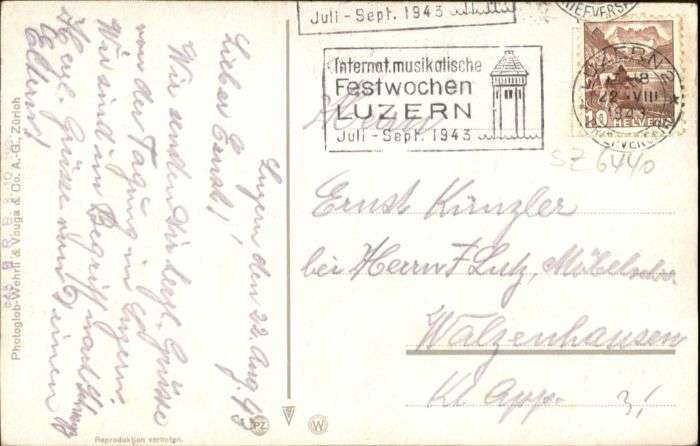 Luzern den 22. Aug. 43
Lieber Ernst!
Wir senden Dir herzl. Grüsse
von der Tagung in Luzern
Wir sind im Begriff nach
Herzl. Grüsse von Deinen
Eltern
Photoglob-Wehrli & Vouga & Co. A.-G., Zürich
Reproduktion verboten.
PZ
W
Juli - Sept. 1943
Internat. musikalische
Festwochen
LUZERN
Juli - Sept. 1943
LUZERN 2
22. VIII
1943
BRIEFVERS
10 HELVETIA
SZ 6440
Herrn
Ernst Künzler
bei Herrn F. Lutz, Möbelschr.
Walzenhausen
Kt. App.
3,-